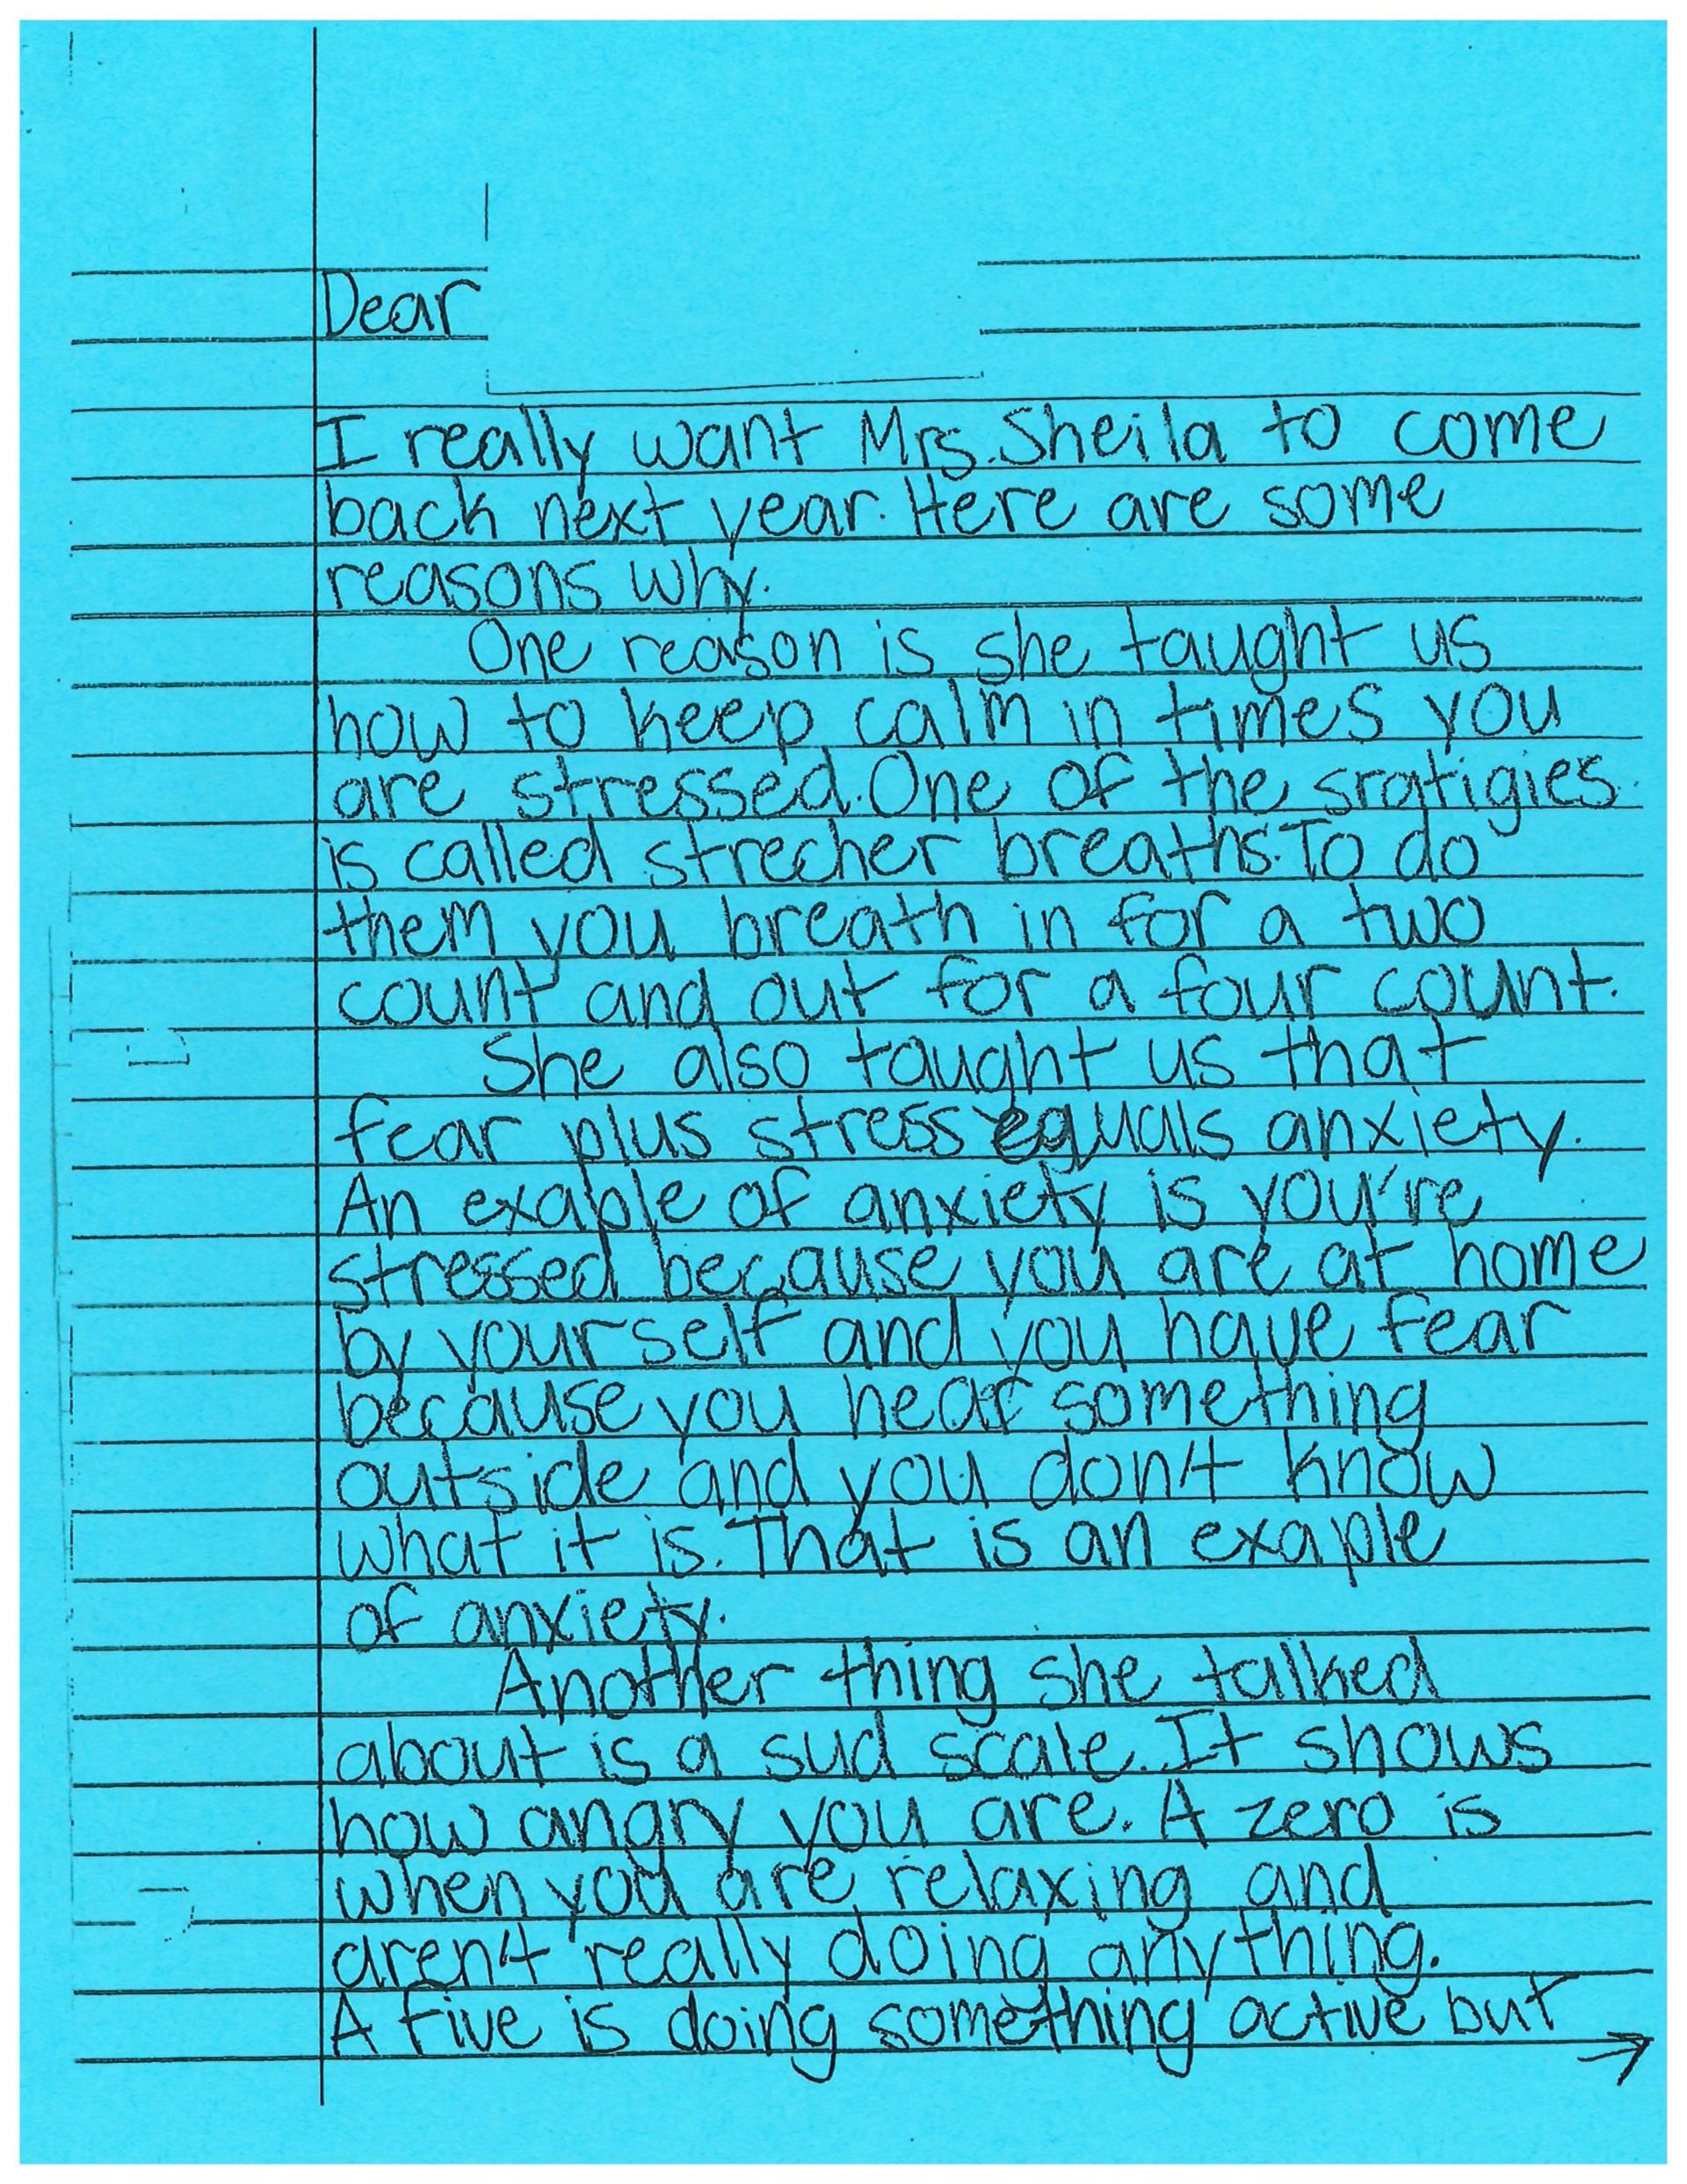 Dear
I really want Mrs. Sheila to come
back next year. Here are some
reasons why.
One reason is she taught us
how to keep calm in times you
are stressed. One of the sratigies
is called strecher breaths. To do
them you breath in for a two
count and out for a four count.
She also taught us that
fear plus stress equals anxiety.
An exaple of anxiety is you're
stressed because you are at home
by yourself and you have fear
because you hear something
outside and you don't know
what it is. That is an exaple
of anxiety.
Another thing she talked
about is a sud scale. It shows
how angry you are. A zero is
when you are relaxing and
aren't really doing anything.
A five is doing something active but
→